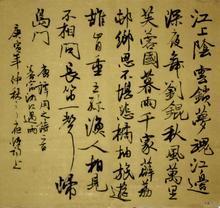 江上陰雲鎖夢魂江邊
深夜舞劉琨秋風萬里
芙蓉國暮雨千家薜荔
邨鄉思不堪悲橘柚旅遊
誰肯重王孫漁人相見
不相問長笛一聲歸
島門
唐譚用之詩
湘江遇雨
庚寅年仲秋